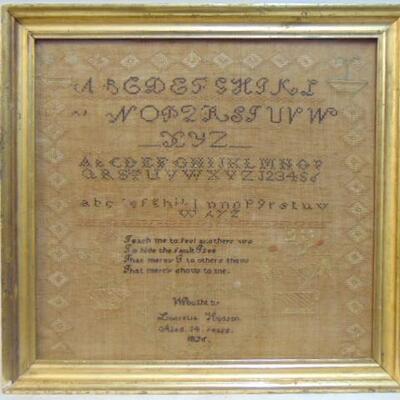 A B C D E F G H I K L
N O P Q R S T U V W
X Y Z
A B C D E F G H I J K L M N O P
Q R S T U V W X Y Z 1 2 3 4 5 6
a b c e f g h i l n o p q r s t u v
w x y z
Teach me to feel anothers wo
To hide the fault I see
That mercy I to others show
That mercy show to me.
Wrought by
Lucretia Hudson
Aged 14 years